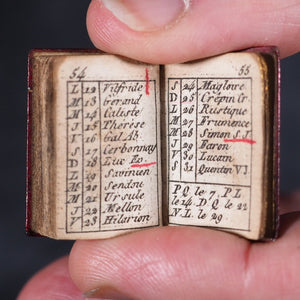 54
L 12 Vilfride
M 13 Gerand
M 14 Caliste
J 15 Thérèse
V 16 Gal Ab
S 17 Cerbonnay
D 18 Luc Ev.
L 19 Savinien
M 20 Sendou
M 21 Ursule
J 22 Mellon
V 23 Hilarion
55
S 24 Magloire
D 25 Crépin Cr
L 26 Rustique
M 27 Frumence
M 28 Simon S.J.
J 29 Faron
V 30 Lucain
S 31 Quentin V.J.
P.Q. le 7. P.L
le 14 D.Q. le 22
N.L. le 29